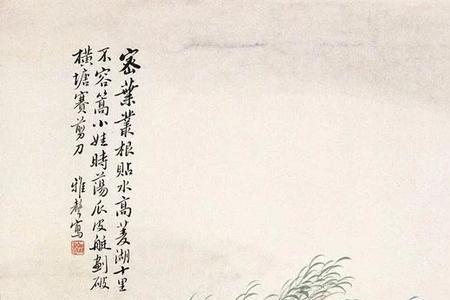 密葉叢根貼水高菱湖十里
不容篙小娃時蕩瓜皮艇劃破
橫塘賽剪刀
雅聲寫